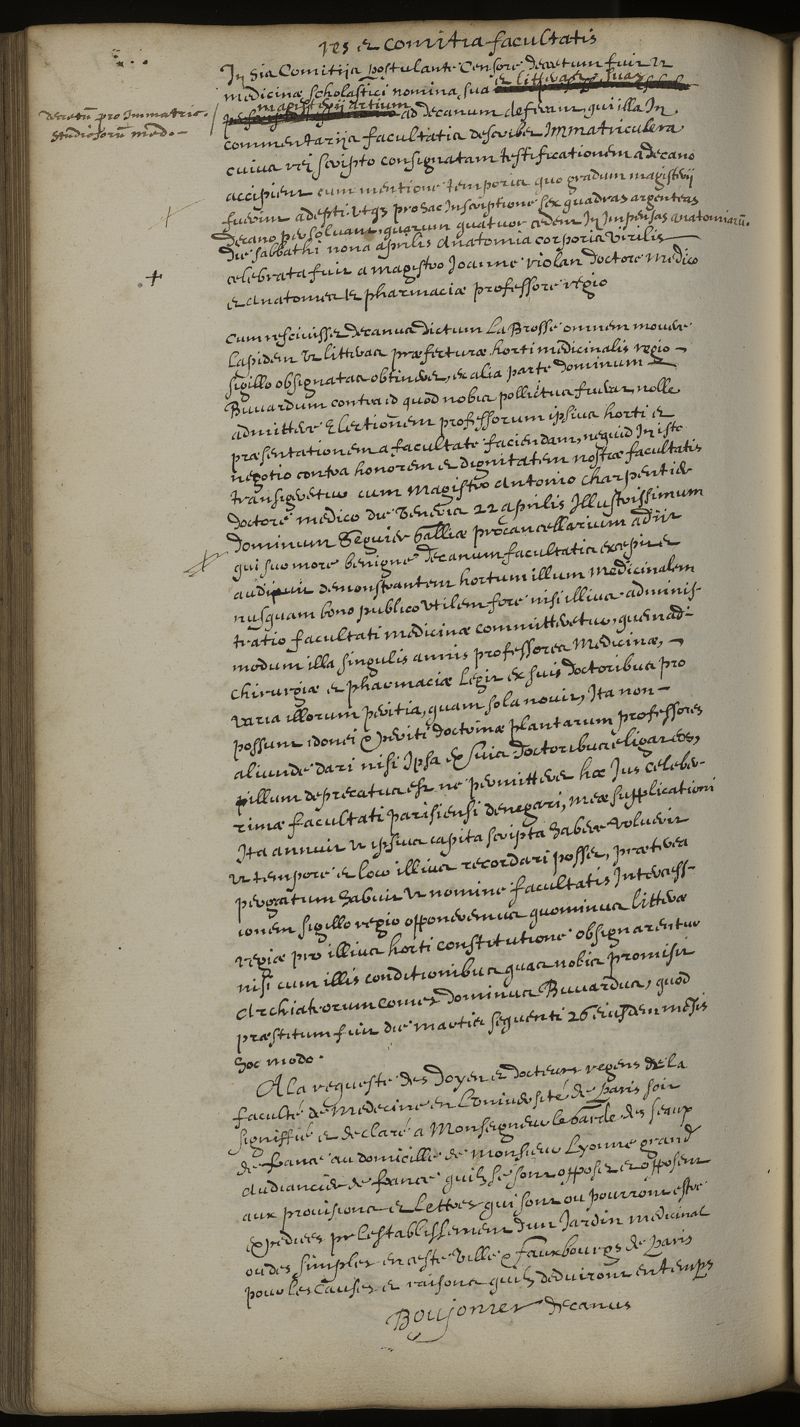 res et comitia facultatis
In dictis Comitijs postulante Censore decretum fuit ut
medicinæ scholastici nomina sua et litteras suas
magisterij artium ad decanum deferant, qui illa In
decretum pro Immatric.
studiosorum med. —
commentarijs facultatis describet Immatriculera
cuius rei scripto consignatam testificationem a decano
accipient cum mentione temporis quo gradum magisterij
fuerint adepti. utque pro hac Inscriptione sex quadras argenteas
decano persolvant, quorum quatuor cedent In Impensas anatomiarum.
die sabbathi nona aprilis anatomia corporis virilis
celebrata fuit a magistro Joanne riolan doctore medico
et anatomes et pharmaciæ professore regio
Cum rescivisset decanus dictum La Brosse omnem movere
Lapidem ut litteras præfecturæ horti medicinalis regio —
sigillo obsignatas obtineret, ex alia parte dominum
Buvardum contra id quod nobis pollicitus fuerat nolle
admittere Electionem professorum ipsius horti et
præsentationem a facultate faciendam, nequid In isto
negotio contra honorem et dignitatem nostræ facultatis
transigeretur cum Magistro antonio Charpentier
doctore medico die Veneris 22 aprilis Illustrissimum
Dominum Seguier Galliæ procancellarium adijt
qui suo more benigne decanum facultatis excepit et
audivit demonstrantem hortum illum medicinalem
nusquam bono publico utilem fore nisi illius adminis-
tratio facultati medicinæ committeretur, quemad-
modum illa singulis annis professores Medicinæ, —
chirurgiæ et pharmaciæ legit ex suis doctoribus pro
varia illorum peritia, quam sola novit, Ita non —
possunt idonei & periti doctrinæ plantarum professores
aliunde dari nisi Ipsa Ex suis doctoribus eligat eos,
illum deprecatus est ne permitteret hoc Jus celeber-
rimæ facultati parisiensi denegari, meæ supplicationi
Ita annuit ut ipsius capita scripta habere voluerit
ut tempore et loco illius recordari posset, præterea
pergratum habuit ut nomine facultatis Intercess-
ionem sigillo regio opponeremus quominus litteræ
regiæ pro illius horti constitutione obsignarentur
nisi cum illis conditionibus quas nobis promisit
Archiatrorum comes dominus Buvardus, quod
præstitum fuit die martis sequenti 26 eiusdem mensis
hoc modo.
A la requeste des Doyen et docteurs regens de la
faculté de Medecine en L'université de Paris soit
signiffié et declaré a Monseigneur le garde des seaux
de france au domicille de Monsieur Lyonne grand
audiancier de france quilz se sont opposez et opposent
aux provisions et Lettres qui sont ou pourront estre
expediees pr lestablissement dun Jardin medicinal
ou des simples en ceste ville & fauxbourgs de Paris
pour les causes et raisons quilz deduiront en temps
Boujonier decanus